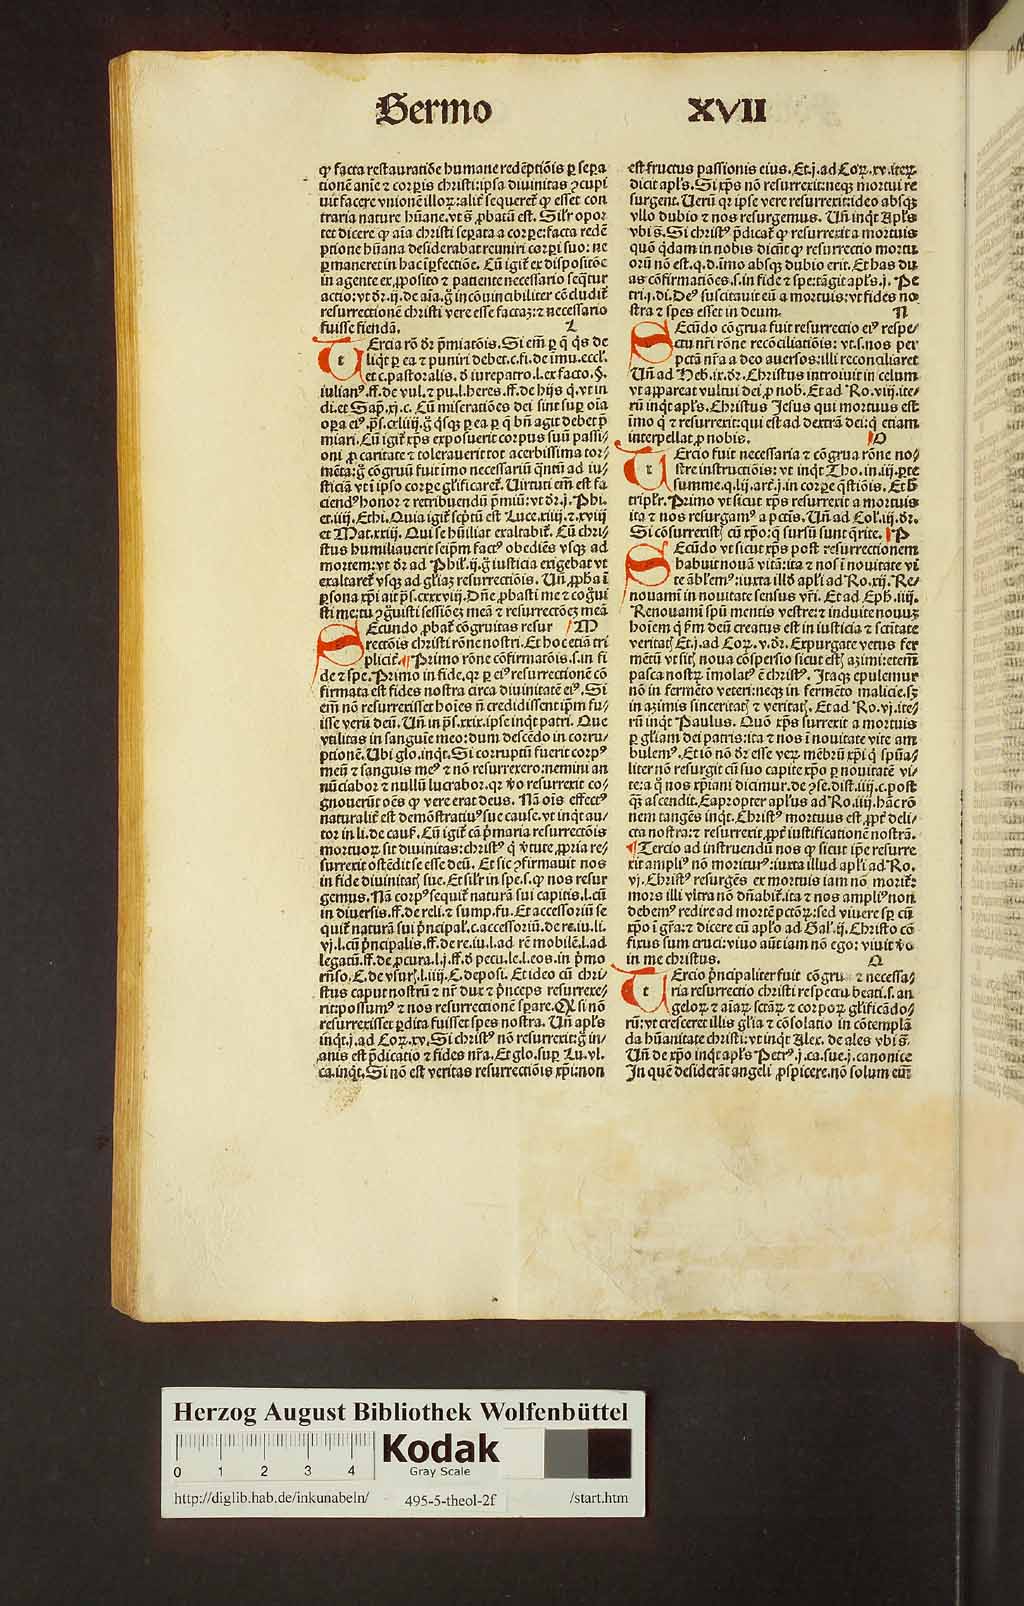 Sermo XVII
ꝙ facta restauratiõe humane redẽptiõis ꝑ sepa
tionẽ anie ⁊ corꝑis christi:ipsa diuinitas ꝯcupi
uit facere vnionẽ illoꝝ:alit̃ sequeret̃ ꝙ esset con
traria nature hũane.vt s̃ ꝓbatũ est. Silr̃ opor
tet dicere ꝙ aĩa christi seꝑata a corꝑe:facta redẽ
ptione hũana desiderabat reuniri corꝑi suo: ne
ꝑmaneret in hac ĩꝑfectiõe. Cũ igit̃ ex dispositõe
in agente ex ꝓposito ⁊ patiente necessario seq̃tur
actio:vt dr̃.ij.de aĩa.g̃ incõuincibiliter cõcludit̃
resurrectionẽ christi vere esse factaꝫ:⁊ necessario
fuisse fiendã. L
TErcia rõ dr̃ p̃miatõis. Si em̃ ꝑ q̃ q̃s de
liq̃t ꝑ ea ⁊ puniri debet.c.fi.de imu.eccl̃.
et c.pastoralis. d̃ iurepatro.l.ex facto.§.
iulianꝰ.ff.de vul.⁊ pu.l.heres.ff.de hijs q̃.vt in
di.et Sap̃.xj.c. Cũ miseratiões dei sint suꝑ oĩa
oꝑa eiꝰ.p̃s.cxliiij.g̃ q̃sqꝫ ꝑ ea ꝑ q̃ bñ agit debet p̃
miari. Cũ igit̃ xp̃s exposuerit corpus suũ passi/
oni ꝓ caritate ⁊ tolerauerit tot acerbissima tor/
mẽta:g̃ cõgruũ fuit ĩmo necessariũ q̃ntũ ad iu/
sticiã vt ĩ ipso corꝑe gl̃ificaret̃. Uirtuti em̃ est fa
ciendꝰ honor ⁊ retribuendũ p̃miũ:vt dr̃.j. Phi.
et.iiij.Ethi. Quia igit̃ sep̃tũ est Luce.xiiij.⁊.xviij
et Mat.xxiij. Qui se hũiliat exaltabit̃. Cũ chri/
stus humiliauerit seip̃m factꝰ obediẽs vsqꝫ ad
mortem:vt dr̃ ad Phil̃.ij.g̃ iusticia exigebat vt
exaltaret̃ vsqꝫ ad gl̃iaꝫ resurrectiõis. Uñ ꝓpha ĩ
ꝑsona xp̃i ait p̃s.cxxxviij. Dñe ꝓbasti me ⁊ cog̃ui
sti me:tu ꝯg̃uisti sessiõeꝫ meã ⁊ resurrectõeꝫ meã
SEcundo ꝓbat̃ cõgruitas resur M
rectõis christi rõne nostri. Et hoc etiã tri
plicit̃. Primo rõne cõfirmatõis.s.in fi
de ⁊ spe. Primo in fide.qꝛ ꝑ eiꝰ resurrectionẽ cõ
firmata est fides nostra circa diuinitatẽ eiꝰ. Si
em̃ nõ resurrexisset hoĩes ñ credidissent ip̃m fu/
isse verũ deũ. Uñ in p̃s.xxix.ipse inq̃t patri. Que
vtilitas in sanguĩe meo:dum descẽdo in corru/
ptionẽ. Ubi glo.inq̃t. Si corruptũ fuerit corpꝰ
meũ ⁊ sanguis meꝰ ⁊ nõ resurrexero:nemini an
nũciabor ⁊ nullũ lucrabor.qꝛ v̾o resurrexit co/
gnouerũt oẽs ꝙ vere erat deus. Nã oĩs effectꝰ
naturalit̃ est demõstratiuꝰ sue cause.vt inq̃t au/
tor in li.de caus̃. Cũ igit̃ cã p̃maria resurrectõis
mortuoꝝ sit diuinitas:christꝰ q̃ v̾tute ꝓpria re/
surrexit ostẽdit se esse deũ. Et sic ꝯfirmauit nos
in fide diuinitatꝭ sue. Et silr̃ in spe.s.ꝙ nos resur
gemus. Nã corpꝰ sequit̃ naturã sui capitis.l.cũ
in diuersis.ff.de reli.⁊ sump.fu. Et accessoriũ se
quit̃ naturã sui p̃ncipal̃.c.accessoriũ.de re.iu.li.
vj.l.cũ p̃ncipalis.ff.de re.iu.l.ad rẽ mobilẽ.l.ad
legatũ.ff.de ꝓcura.l.j.ff.d̃ pecu.le.l.eos.in p̃mo
rñso.C.de vsurꝭ.l.iiij.C.deposi. Et ideo cũ chri/
stus caput nostrũ ⁊ nr̃ dux ⁊ p̃nceps resurrexe/
rit:possumꝰ ⁊ nos resurrectionẽ sperare. Qꝛ si nõ
resurrexisset ꝑdita fuisset spes nostra. Uñ apl̃s
inq̃t.j.ad Coꝝ.xv. Si christꝰ nõ resurrexit:g̃ in/
anis est p̃dicatio ⁊ fides nr̃a. Et glo.suꝑ Lu.vl.
ca.inq̃t. Si nõ est veritas resurrectiõis xp̃i:non
est fructus passionis eius. Et.j.ad Coꝝ.xv.iteꝝ
dicit apl̃s. Si xp̃s nõ resurrexit:neqꝫ mortui re
surgent. Uerũ qꝛ ipse vere resurrexit:ideo absqꝫ
vllo dubio ⁊ nos resurgemus. Uñ inq̃t Apl̃s
vbi s̃. Si christꝰ p̃dicat̃ ꝙ resurrexit a mortuis
quõ q̃dam in nobis dicũt ꝙ resurrectio mortu
orũ nõ est.q.d.ĩmo absqꝫ dubio erit. Et has du
as cõfirmatiões.s.in fide ⁊ spe:tãgit apl̃s.j. Pe
tri.j.di. Deꝰ suscitauit eũ a mortuis:vt fides no
stra ⁊ spes esset in deum. N
SEcũdo cõgrua fuit resurrectio eiꝰ respe/
ctu nr̃i rõne recõciliatiõis: vt.s.nos per
pctã nr̃a a deo auersos:illi reconciliaret
Uñ ad Heb.ix.dr̃. Christus introiuit in celum
vt appareat vultui dei ꝓ nob̃. Et ad Ro.viij.ite/
rũ inq̃t apl̃s. Christus Jesus qui mortuus est
ĩmo q̃ ⁊ resurrexit:qui est ad dextrã dei:q̃ etiam
interpellat ꝓ nobis. O
TErcio fuit necessaria ⁊ cõgrua rõne no/
stre instructiõis: vt inq̃t Tho.in.iij.ꝑte
summe.q.lij.arĩ.j.in corꝑe q̃stiõis. Et h̾
triplr̃. Primo vt sicut xp̃s resurrexit a mortuis
ita ⁊ nos resurgamꝰ a pctĩs. Uñ ad Col̃.iij.dr̃.
Si cõsurrexistꝭ cũ xp̃o:q̃ sursũ sunt q̃rite. P
SEcũdo vt sicut xp̃s post resurrectionem
habuit nouã vitã:ita ⁊ nos ĩ nouitate vi
te ãb̃lemꝰ:iuxta ill̃d apl̃i ad Ro.xij. Re/
nouamĩ in nouitate sensus vr̃i. Et ad Eph̃.iiij.
Renouamĩ sp̃u mentis vestre:⁊ induite nouuꝫ
hoĩem q̃ ẜm deũ creatus est in iusticia ⁊ sc̃itate
veritatꝭ Et.j.ad Coꝝ.v.dr̃. Expurgate vetus fer
mẽtũ vt sitꝭ noua cõspersio sicut estꝭ azimi:etem̃
pasca nostꝝ ĩmolatꝰ ẽ christꝰ. Itaqꝫ epulemur
nõ in fermẽto veteri:neqꝫ in fermẽto malicie.sꝫ
in azimis sinceritatꝭ ⁊ veritatꝭ. Et ad Ro.vj.ite/
rũ inq̃t Paulus. Quõ xp̃s surrexit a mortuis
ꝑ gl̃iam dei patris:ita ⁊ nos ĩ nouitate vite am
bulemꝰ. Et iõ nõ dr̃ esse veꝝ mẽbrũ xp̃i q̃ sp̃ua/
liter nõ resurgit cũ suo capite xp̃o ꝑ nouitatẽ vi/
te:a q̃ nos xp̃iani dicimur.de ꝯse.dist.iiij.c.post
q̃ꝫ ascendit. Eapropter apl̃us ad Ro.iiij.hãc rõ
nem tangẽs inq̃t. Christꝰ mortuus est ꝓpt̃ deli/
cta nostra:⁊ resurrexit ꝓpt̃ iustificationẽ nostrã.
Tercio ad instruendũ nos ꝙ sicut ip̃e resurre
xit ampliꝰ nõ moriturꝰ:iuxta illud apl̃i ad Ro.
vj. Christꝰ resurgẽs ex mortuis iam nõ morit̃:
mors illi vltra nõ dñabit̃.ita ⁊ nos ampliꝰ non
debemꝰ redire ad mortẽ pctõꝝ:sed viuere sꝑ cũ
xp̃o ĩ gr̃a:⁊ dicere cũ apl̃o ad Gal̃.ij. Christo cõ
fixus sum cruci:viuo aũt iam nõ ego: viuit v̾o
in me christus. Q
TErcio p̃ncipaliter fuit cõgrua ⁊ necessa/
ria resurrectio christi respectu beati.s.an
geloꝝ ⁊ aĩaꝝ sctãꝝ ⁊ corpoꝝ gl̃ificãdo/
rũ:vt cresceret illis gl̃ia ⁊ cõsolatio in cõtemplã
da hũanitate christi:vt inq̃t Alex. de ales vbi s̃.
Uñ de xp̃o inq̃t apl̃s Petrꝰ.j.ca.sue.j.canonice
In quẽ desiderãt angeli ꝓspicere.nõ solum eiꝰ
Herzog August Bibliothek Wolfenbüttel
0 1 2 3 4
Kodak
Gray Scale
http://diglib.hab.de/inkunabeln/ 495-5-theol-2f /start.htm